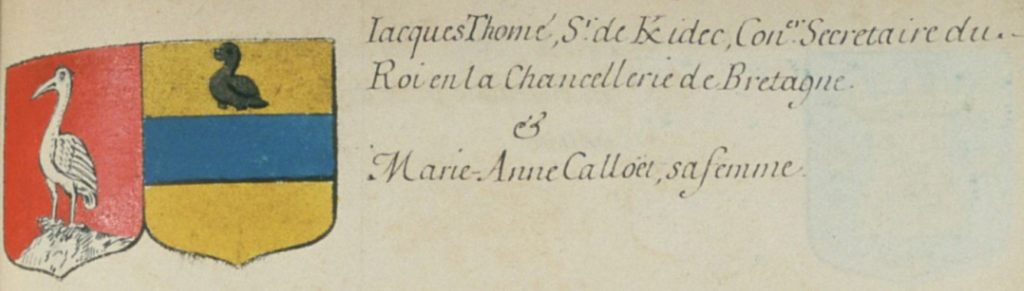 Iacques Thomé, Sr. de Kidec, Coner. Secretaire du.
Roi en la Chancellerie de Bretagne.
&
Marie-Anne Calloët, sa femme.